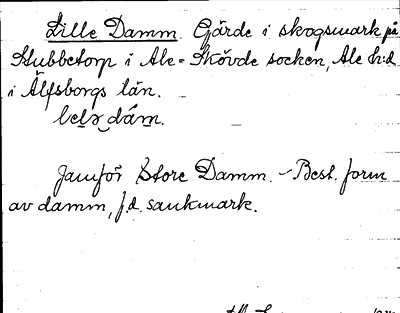 Lille Damm. Gärde i skogsmark på
Stubbetorp i Ale-Skövde socken, Ale h:d
i Älfsborgs län.
Jämför Store Damm. - Best. form
av damm, f.d. sankmark.